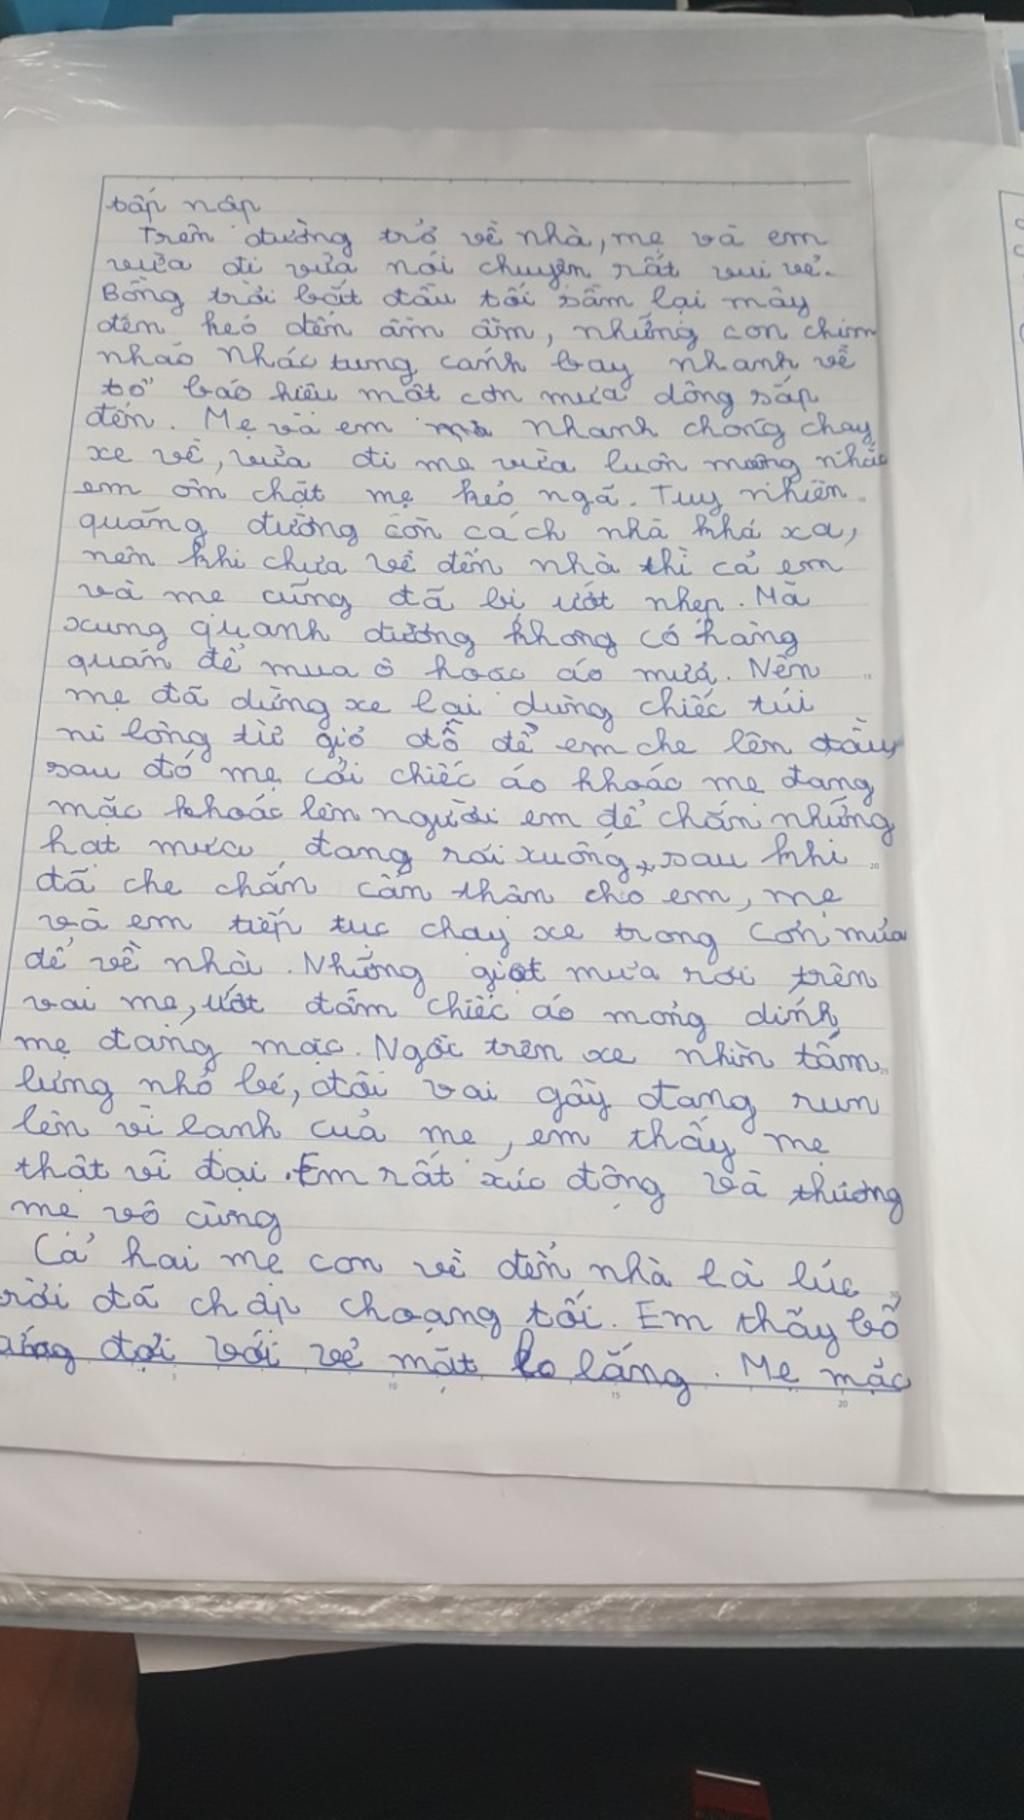 tấp nập
Trên đường trở về nhà, mẹ và em
vừa đi vừa nói chuyện rất vui vẻ.
Bỗng trời bắt đầu tối sầm lại mây
đen kéo đến ầm ầm, những con chim
nháo nhác tung cánh bay nhanh về
tổ báo hiệu một cơn mưa dông sắp
đến. Mẹ và em nhanh chóng chạy
xe về, vừa đi mẹ vừa luôn mồng nhắc
em ôm chặt mẹ kẻo ngã. Tuy nhiên
quãng đường còn cách nhà khá xa,
nên khi chưa về đến nhà thì cả em
và mẹ cũng đã bị ướt nhẹp. Mà
xung quanh đường không có hàng
quán để mua ô hoặc áo mưa. Nên
mẹ đã dừng xe lại dùng chiếc túi
ni lông từ giỏ đồ để em che lên đầu
sau đó mẹ cởi chiếc áo khoác mẹ đang
mặc khoác lên người em để chắn những
hạt mưa đang rơi xuống, sau khi
đã che chắn cẩn thận cho em, mẹ
và em tiếp tục chạy xe trong cơn mưa
để về nhà. Những giọt mưa rơi trên
vai mẹ, ướt đẫm chiếc áo mỏng dính
mẹ đang mặc. Ngồi trên xe nhìn tấm
lưng nhỏ bé, đôi vai gầy đang run
lên vì lạnh của mẹ, em thấy mẹ
thật vĩ đại. Em rất xúc động và thương
mẹ vô cùng
Cả hai mẹ con về đến nhà là lúc
rời đã chập choạng tối. Em thấy bố
đợi với vẻ mặt lo lắng. Mẹ mặc